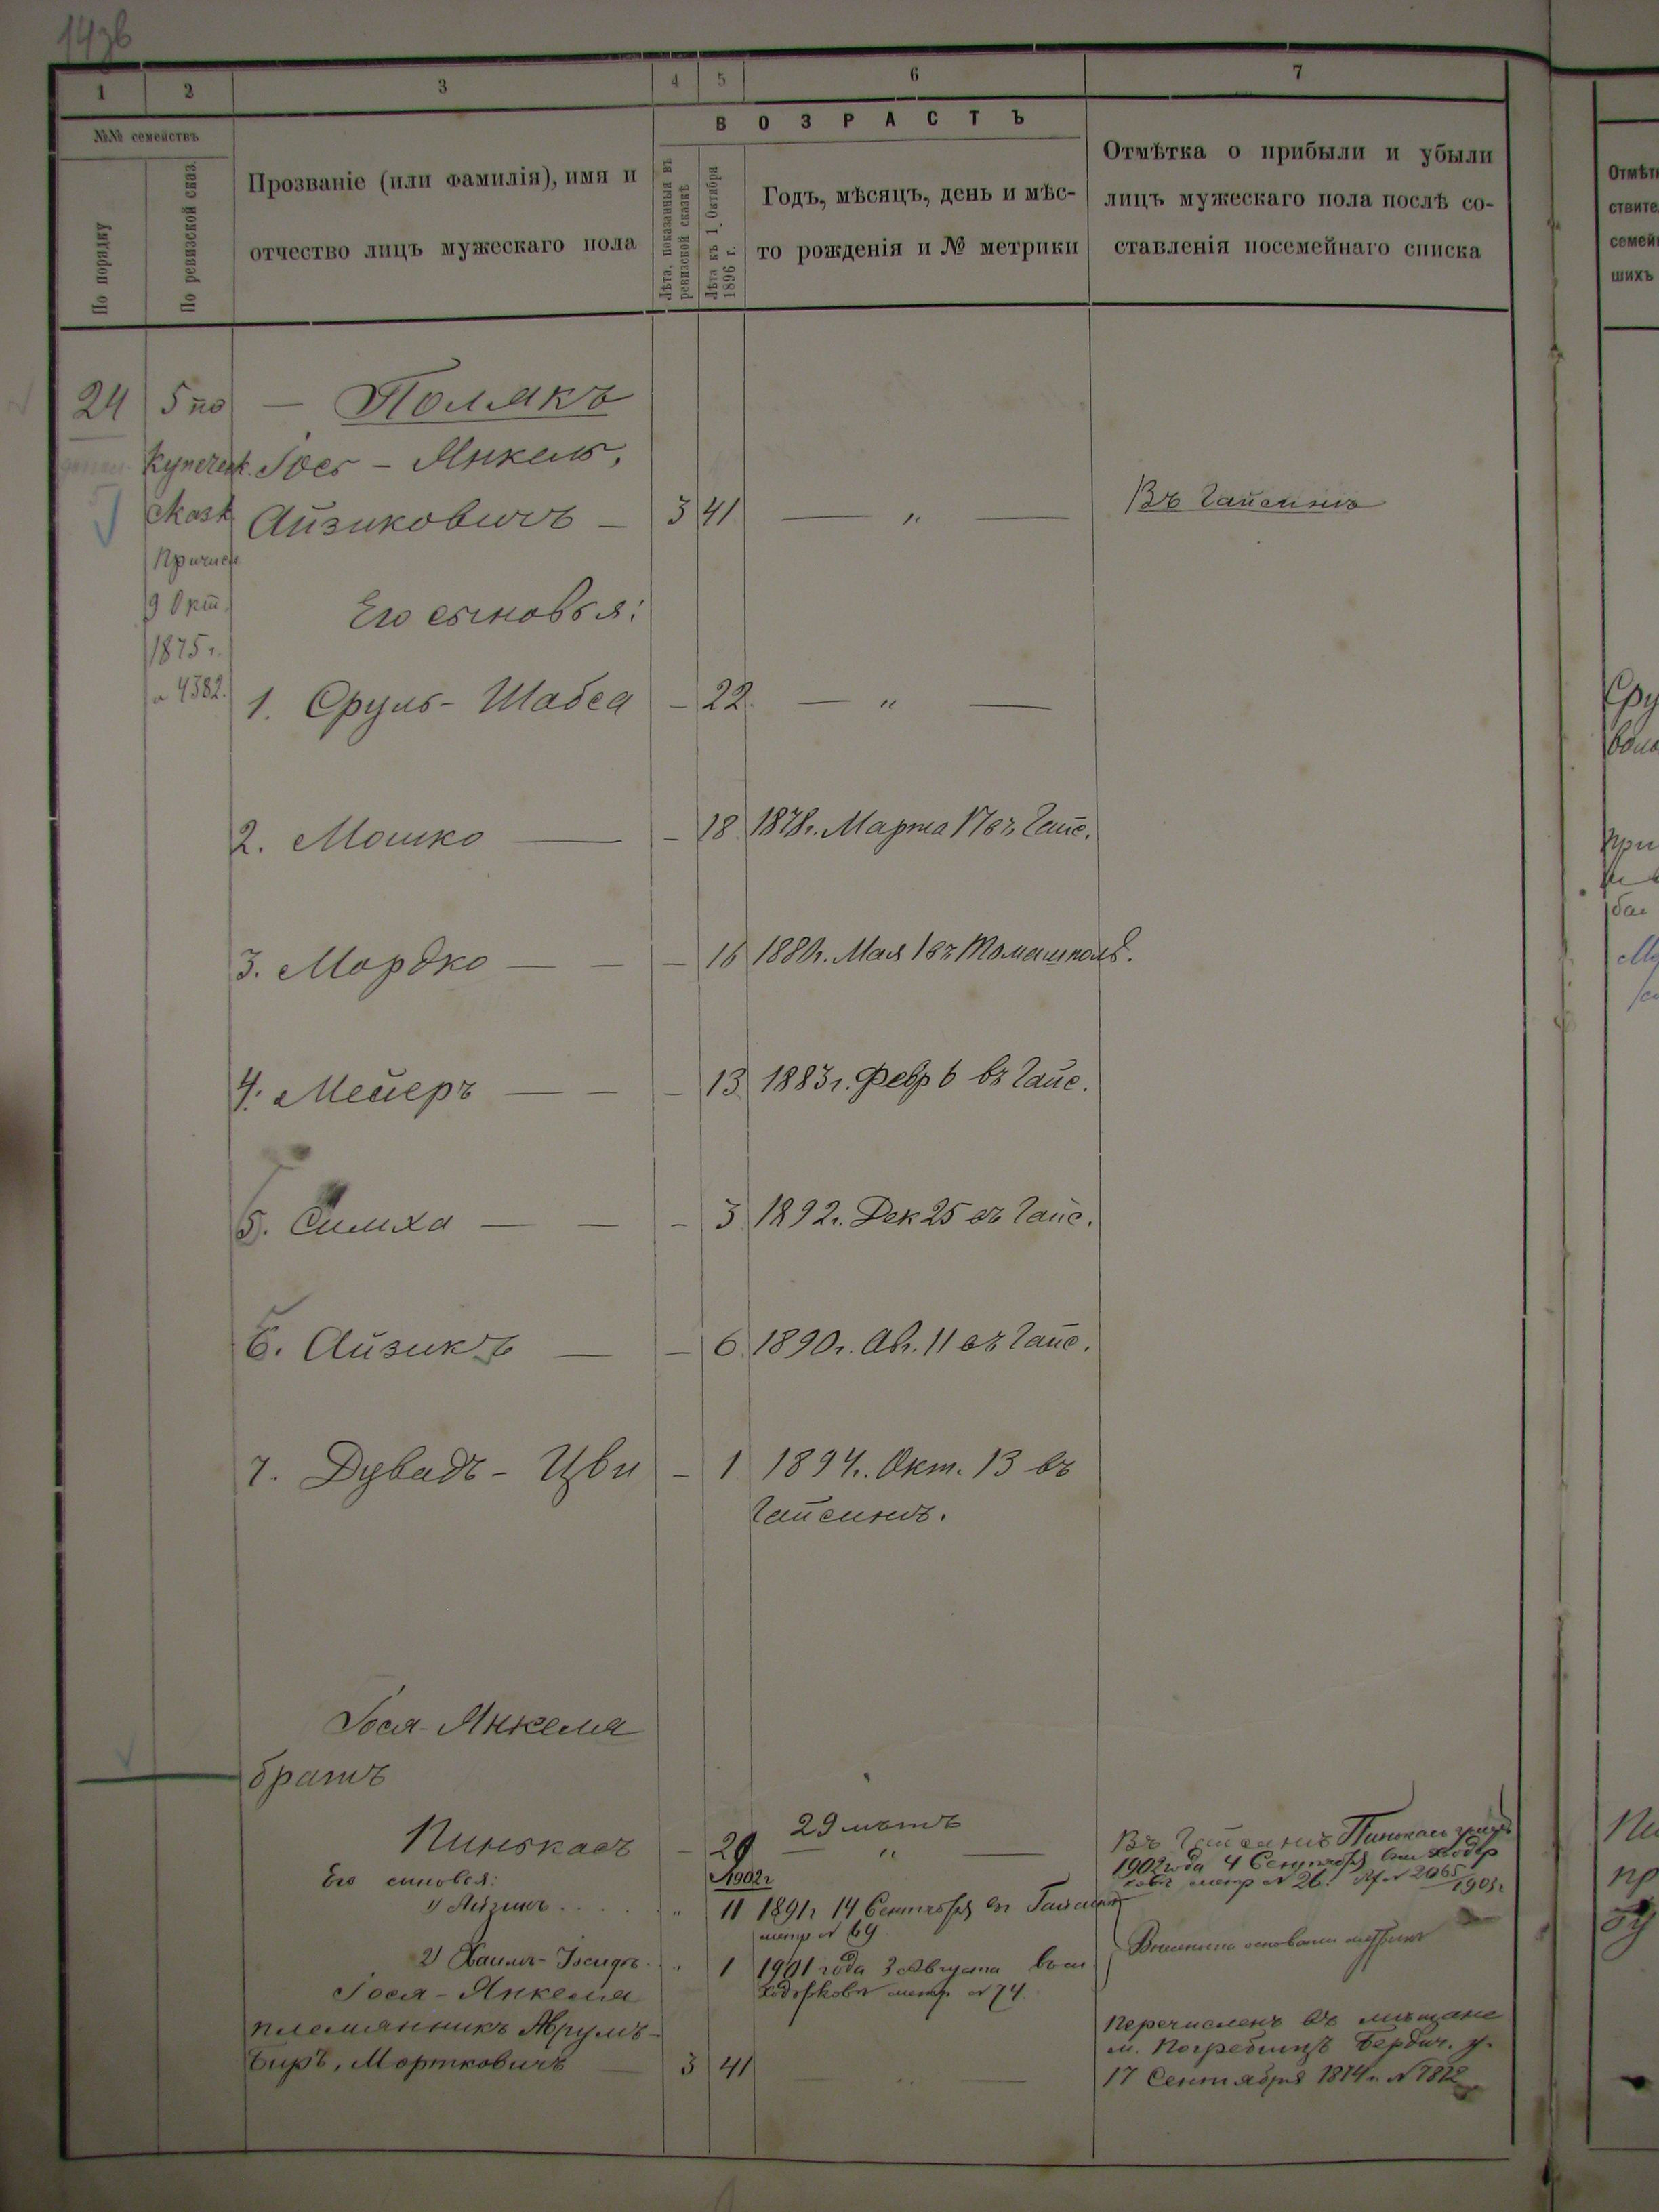 1 2 3 4 5 6 7
№№ семействъ
По порядку
По ревизской сказ.
Прозваніе (или фамилія), имя и
отчество лицъ мужескаго пола
ВОЗРАСТЪ
Лѣта, показанныя въ
ревизской сказкѣ
Лѣта къ 1 Октября
1896 г.
Годъ, мѣсяцъ, день и мѣс-
то рожденія и № метрики
Отмѣтка о прибыли и убыли
лицъ мужескаго пола послѣ со-
ставленія посемейнаго списка
24 5 по — Полякъ
купеческ. Іось - Янкель,
сказк. Айзиковичъ — 3 41 — „ — Въ Гайсинѣ
Причисл.
9 Окт. Его сыновья:
1875 г.
№ 4382.
1. Сруль - Шабса — 22. — „ —
2. Мошко — — 18 1878 г. Марта 17 въ Гайс.
3. Мордко — — — 16 1880 г. Мая 1 въ Томашполѣ.
4. Мейеръ — — — 13 1883 г. Февр 6 въ Гайс.
5. Симха — — — 3 1892 г. Дек 25 въ Гайс.
6. Айзикъ — — 6 1890 г. Авг. 11 въ Гайс.
7. Дувадъ - Цви — 1 1894 г. Окт. 13 въ
Гайсинѣ.
Іося - Янкеля
братъ
29 лѣтъ
Пинькасъ — 29 — „ — Въ Гайсинѣ Пинькасъ
1902 года 4 Сентября
метр № 26. № 2065
1903 г
Его сыновья: 1902 г
1) Айзикъ . . . . . „ 11 1891 г 14 Сентября въ Гайсинѣ
метр № 69
2) Хаимъ - . „ 1 1901 года 3 Августа
метр № 74.
Іося - Янкеля
племянникъ Аврумъ -
Беръ, Мортковичъ — 3 41 — —
Перечисленъ въ мѣщане
м. Погребищъ Бердич. у.
17 Сентября 1874 г.